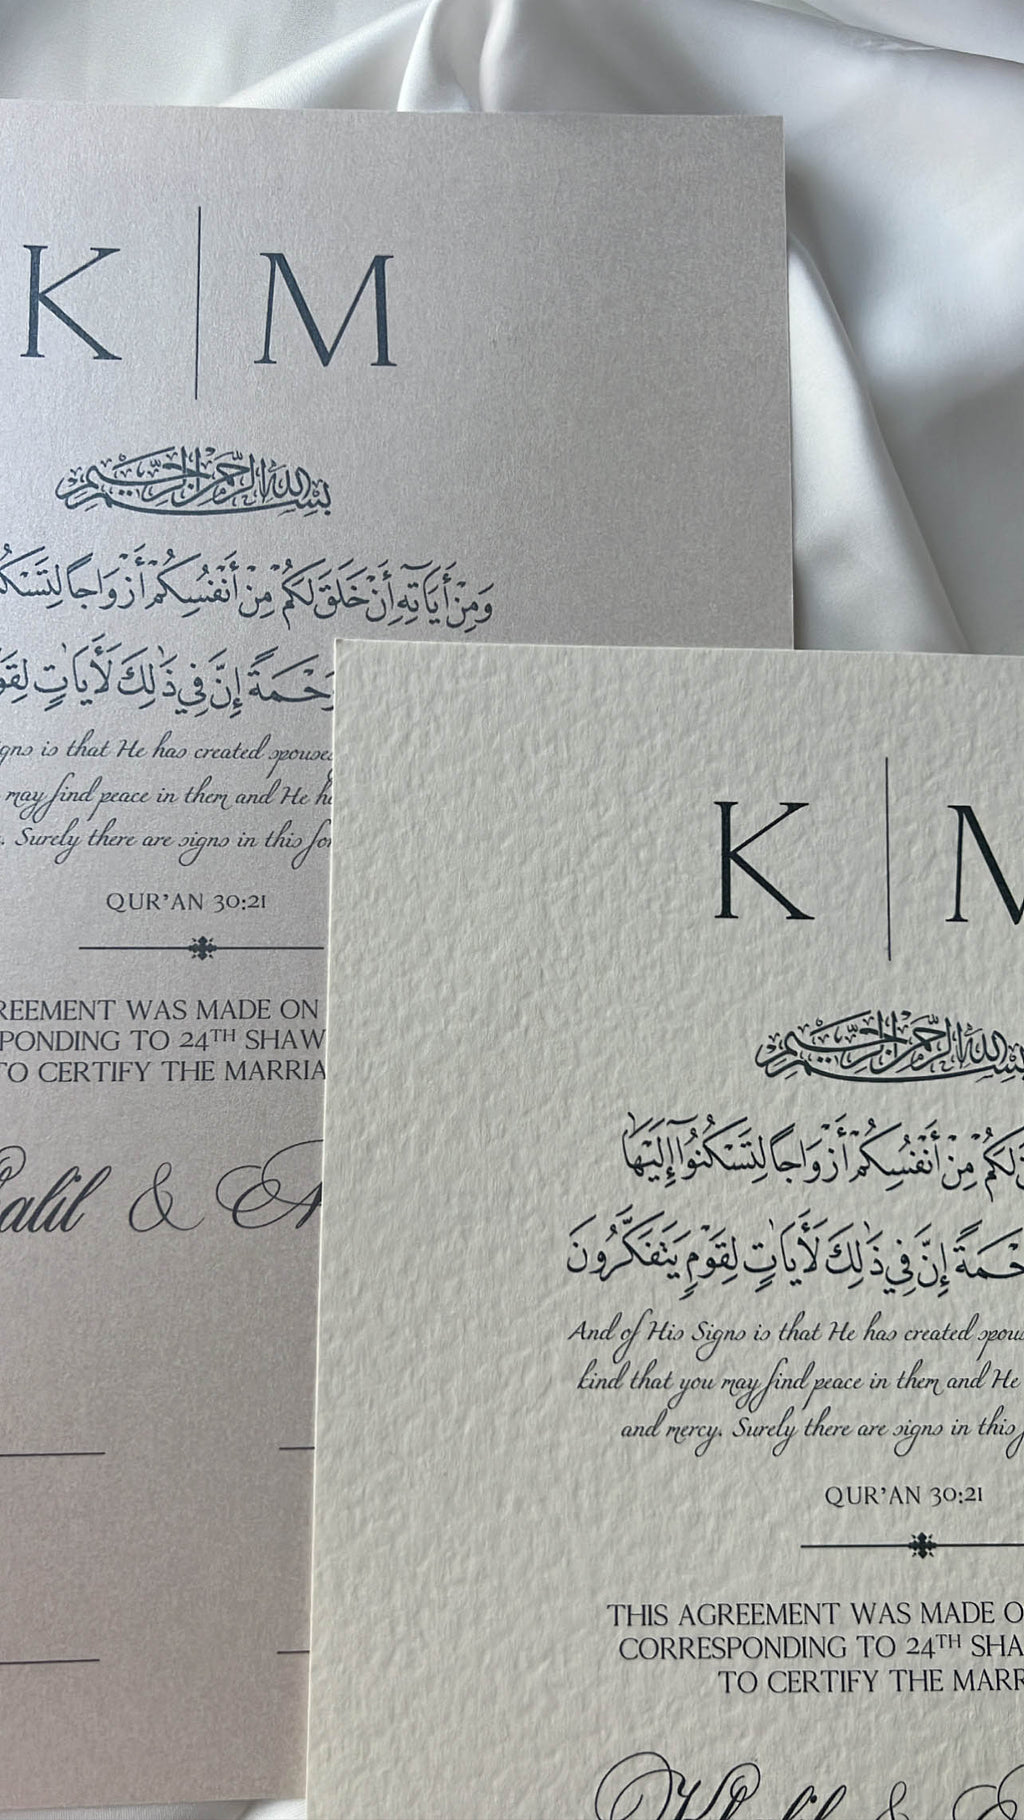 K | M
بسم الله الرحمن الرحيم
وَمِنْ أَيَاتِهِ أَنْ خَلَقَ لَكُم مِنْ أَنْفُسِكُم أَزْوَاجًا
رَحْمَةً إِنَّ فِي ذَٰلِكَ لَأَيَاتٍ
is that He has created spouses
may find peace in them and He
Surely there are signs in this
QUR'AN 30:21
WAS MADE ON
TO 24TH
TO CERTIFY THE
&
K |
بسم الله الرحمن الرحيم
لَكُم مِنْ أَنْفُسِكُم أَزْوَاجًا لِتَسْكُنُوا إِلَيْهَا
إِنَّ فِي ذَٰلِكَ لَأَيَاتٍ لِقَوْمٍ يَتَفَكَّرُونَ
And of His Signs is that He has created
kind that you may find peace in them and He
and mercy. Surely there are signs in this
QUR'AN 30:21
THIS AGREEMENT WAS MADE
CORRESPONDING TO 24TH
TO CERTIFY THE
Khalil &